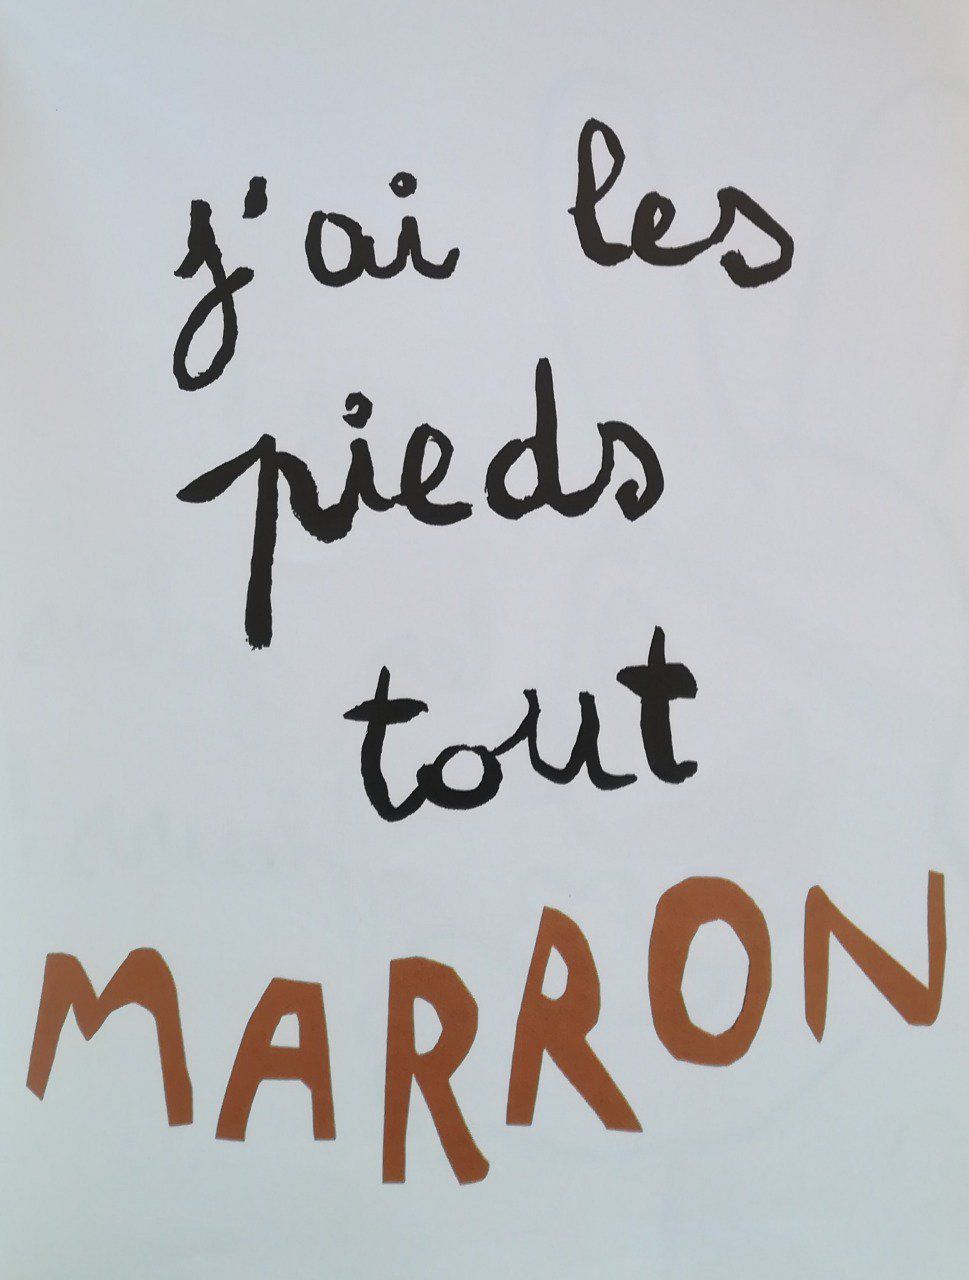 j'ai les
pieds
tout
MARRON